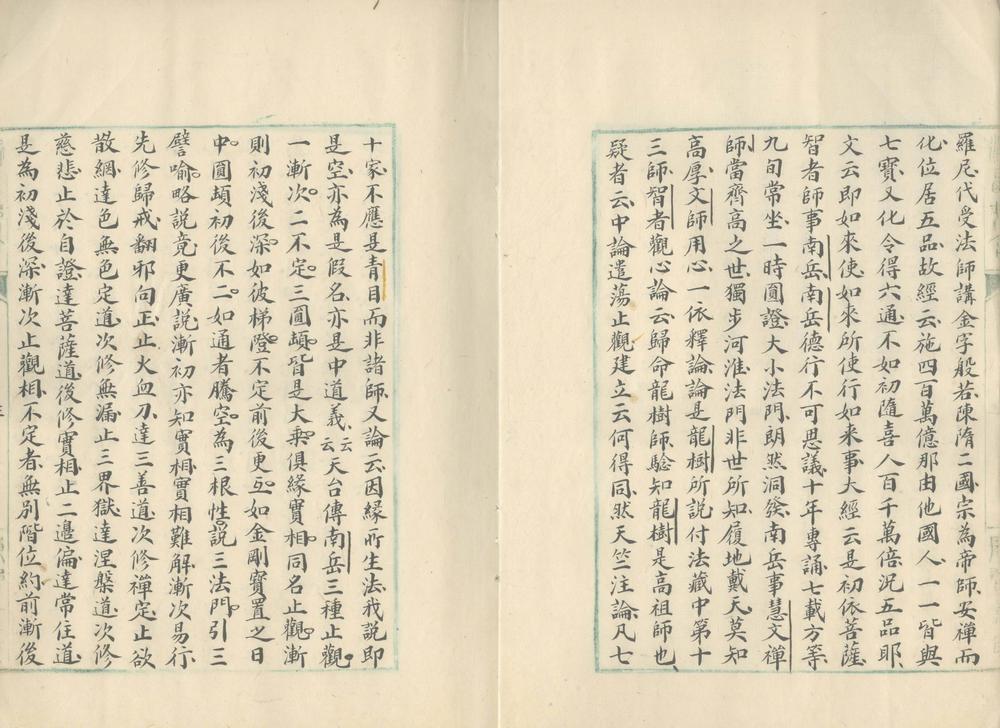 羅尼代受法師講金字般若陳隋二國宗為帝師安禪而
化位居五品故經云施四百萬億那由他國人一一皆與
七寶又化令得六通不如初隨喜人百千萬倍況五品耶
文云即如來使如來所使行如來事大經云是初依菩薩
智者師事南岳南岳德行不可思議十年專誦七載方等
九旬常坐一時圓證大小法門朗然洞發南岳事慧文禪
師當齊高之世獨步河淮法門非世所知履地戴天莫知
高厚文師用心一依釋論論是龍樹所說付法藏中第十
三師智者觀心論云歸命龍樹師驗知龍樹是高祖師也
疑者云中論遣蕩止觀建立云何得同然天竺注論凡七
十家不應是青目而非諸師又論云因緣所生法我說即
是空亦為是假名亦是中道義云云天台傳南岳三種止觀
一漸次二不定三圓頓皆是大乘俱緣實相同名止觀漸
則初淺後深如彼梯隥不定前後更互如金剛寶置之日
中圓頓初後不二如通者騰空為三根性說三法門引三
譬喻略說竟更廣說漸初亦知實相實相難解漸次易行
先修歸戒翻邪向正止火血刀達三善道次修禪定止欲
散網達色無色定道次修無漏止三界獄達涅槃道次修
慈悲止於自證達菩薩道後修實相止二邊偏達常住道
是為初淺後深漸次止觀相不定者無別階位約前漸後